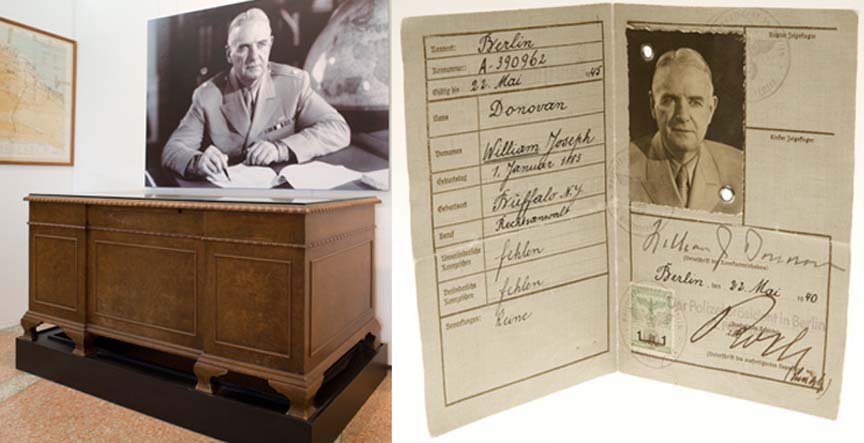 Kennort: Berlin
Kennnummer: A-390962
Gültig bis 22. Mai 1945
Name Donovan
Vornamen William Joseph
Geburtstag 1. Januar 1883
Geburtsort Buffalo N.Y
Beruf Rechtsanwalt
Unveränderliche Kennzeichen fehlen
Veränderliche Kennzeichen fehlen
Bemerkungen: Keine
Rechter Zeigefinger
Linker Zeigefinger
William J Donovan
(Unterschrift des Kennkarteninhabers)
Berlin, den 22 Mai 1940
Der Polizeipräsident in Berlin
1 1